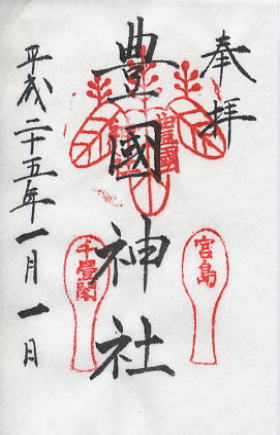 奉拝
豊國神社
平成二十五年一月一日
宮島
千畳閣